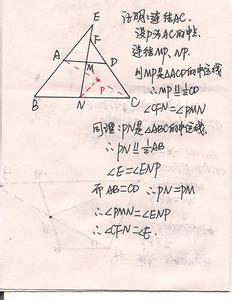 E
F
A
D
M
P
B
N
C
证明:连结AC.
设P为AC的中点
连结MP、NP.
则MP是△ACD的中位线
∴MP∥½CD
∠CFN=∠PMN
同理:PN是△ABC的中位线.
∴PN∥½AB
∠E=∠ENP
而AB=CD ∴PN=PM
∴∠PMN=∠ENP
∴∠CFN=∠E.